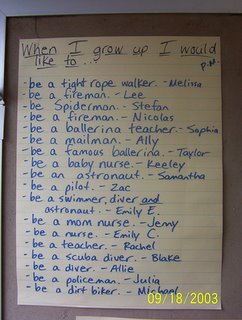 When I grow up I would
like to...
P.M.
- be a tight rope walker. - Melissa
- be a fireman. - Lee
- be Spiderman. - Stefan
- be a fireman. - Nicolas
- be a ballerina teacher. - Sophia
- be a mailman. - Ally
- be a famous ballerina. - Taylor
- be a baby nurse. - Keeley
- be an astronaut. - Samantha
- be a pilot. - Zac
- be a swimmer, diver and
astronaut. - Emily E.
- be a mom nurse. - Jenny
- be a nurse. - Emily C
- be a teacher. - Rachel
- be a scuba diver. - Blake
- be a diver. - Allie
- be a policeman. - Julia
- be a dirt biker. - Michael
09/18/2003